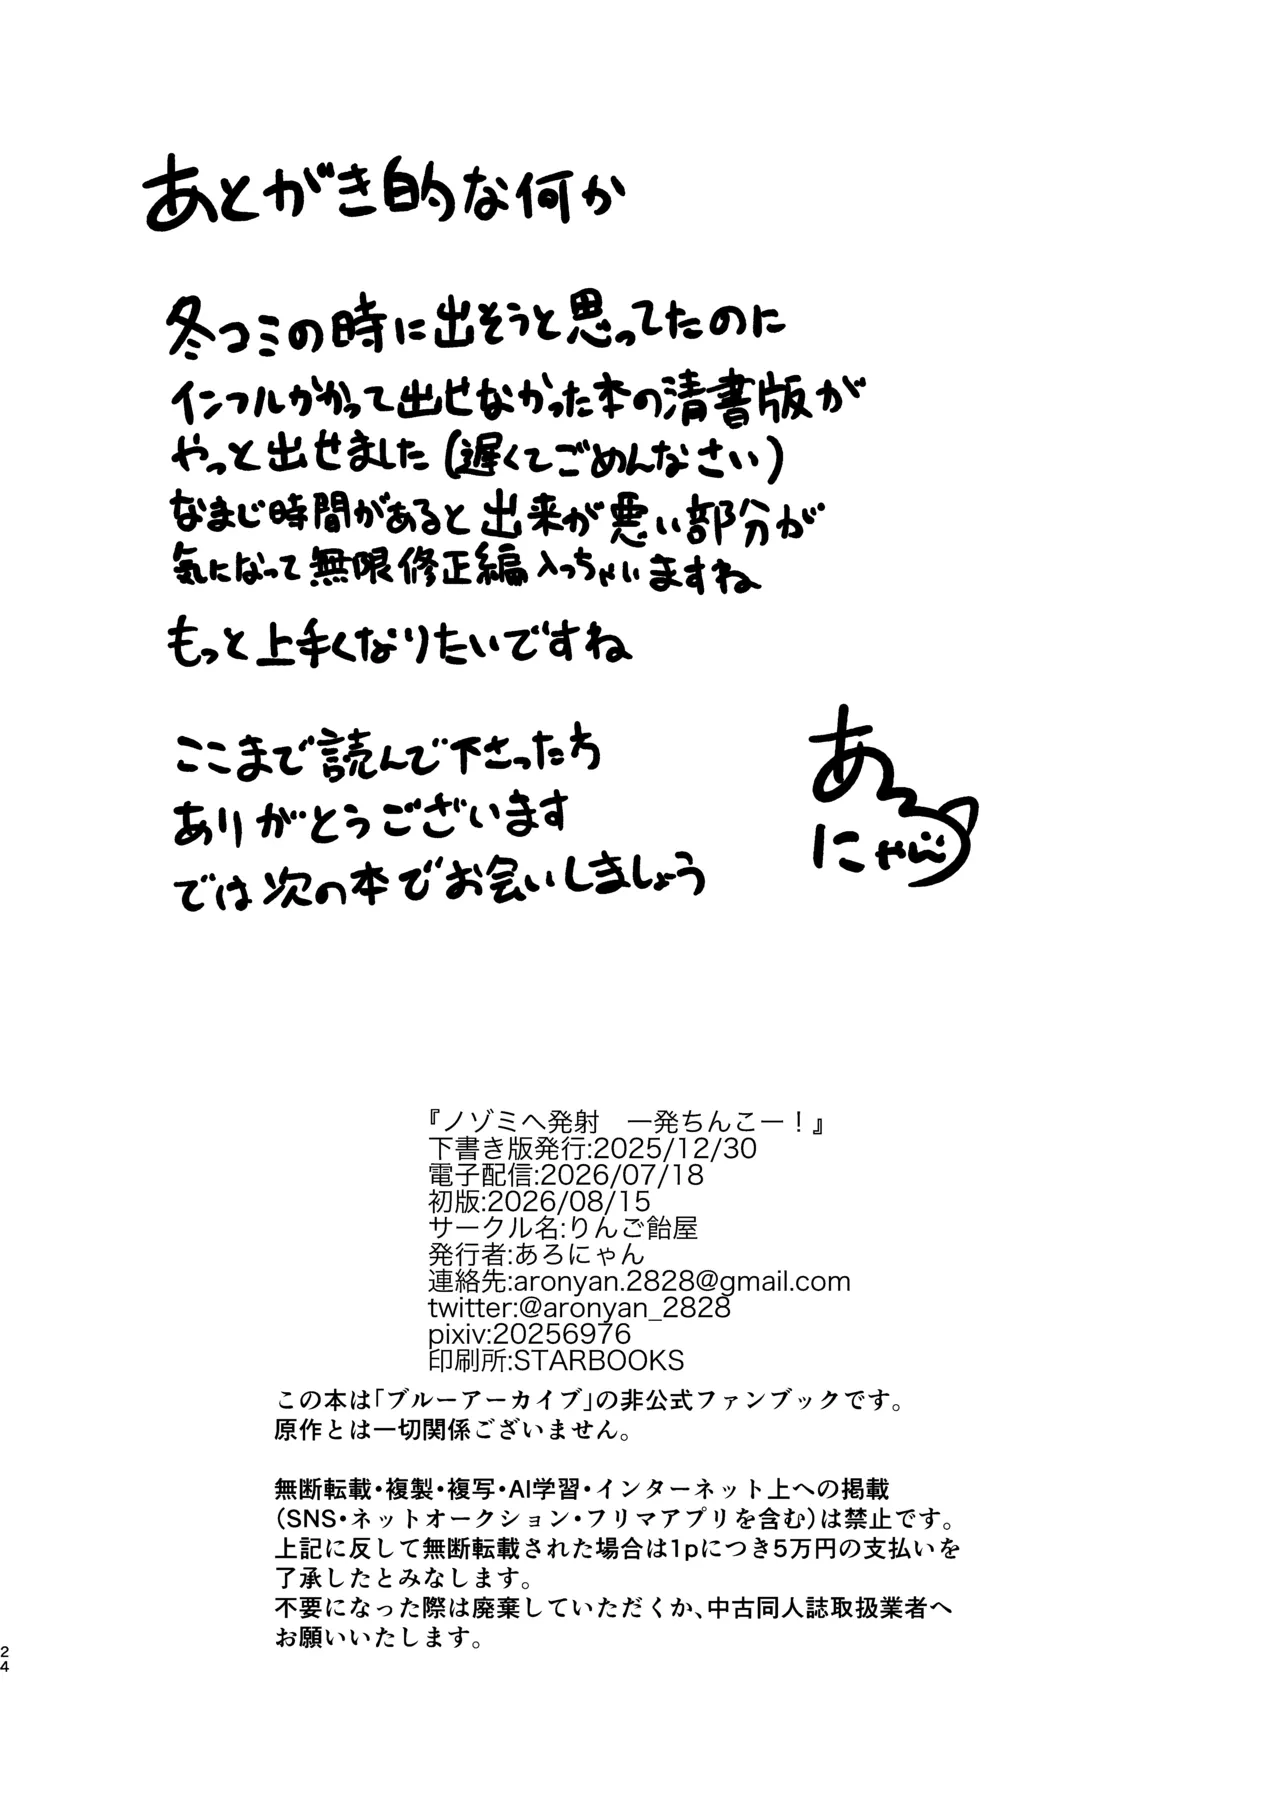 あとがき的な何か
冬コミの時に出そうと思ってたのに
インフルかかって出せなかった本の清書版が
やっと出せました(遅くてごめんなさい)
なまじ時間があると出来が悪い部分が
気になって無限修正編入っちゃいますね
もっと上手くなりたいですね
ここまで読んで下さった方
ありがとうございます
では次の本でお会いしましょう
あろ
にゃん
『ノゾミへ発射　一発ちんこー！』
下書き版発行:2025/12/30
電子配信:2026/07/18
初版:2026/08/15
サークル名:りんご飴屋
発行者:あろにゃん
連絡先:aronyan.2828@gmail.com
twitter:@aronyan_2828
pixiv:20256976
印刷所:STARBOOKS
この本は「ブルーアーカイブ」の非公式ファンブックです。
原作とは一切関係ございません。
無断転載・複製・複写・AI学習・インターネット上への掲載
（SNS・ネットオークション・フリマアプリを含む）は禁止です。
上記に反して無断転載された場合は1pにつき5万円の支払いを
了承したとみなします。
不要になった際は廃棄していただくか、中古同人誌取扱業者へ
お願いいたします。
24